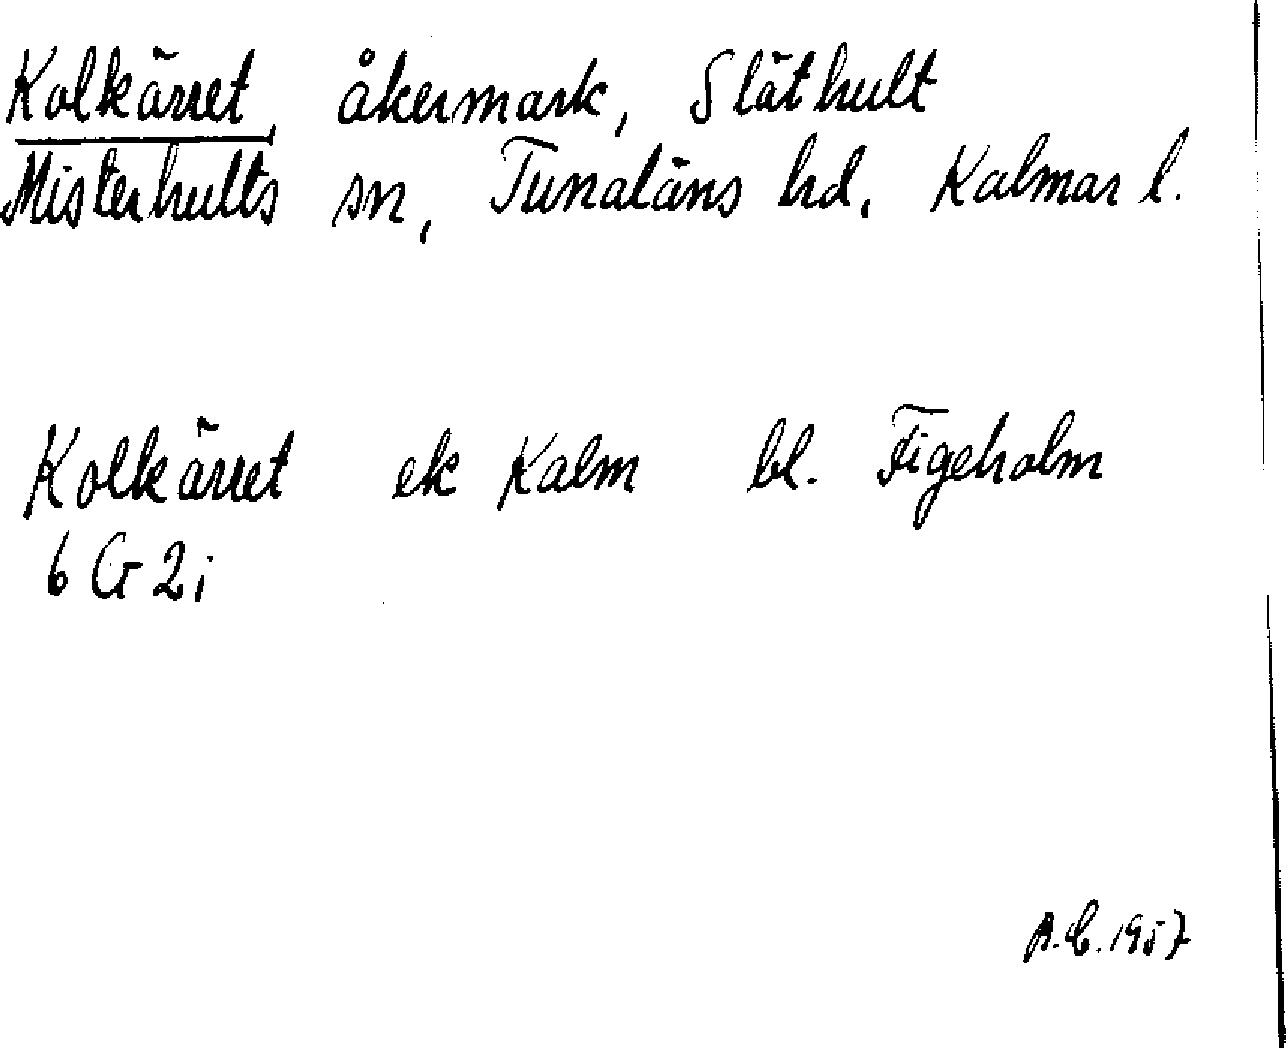 Kolkärret, åkermark, Släthult
Misterhults sn, Tunaläns hd. Kalmar l.
Kolkärret ek Kalm bl. Figeholm
6 G 2 i
A.C. 1957